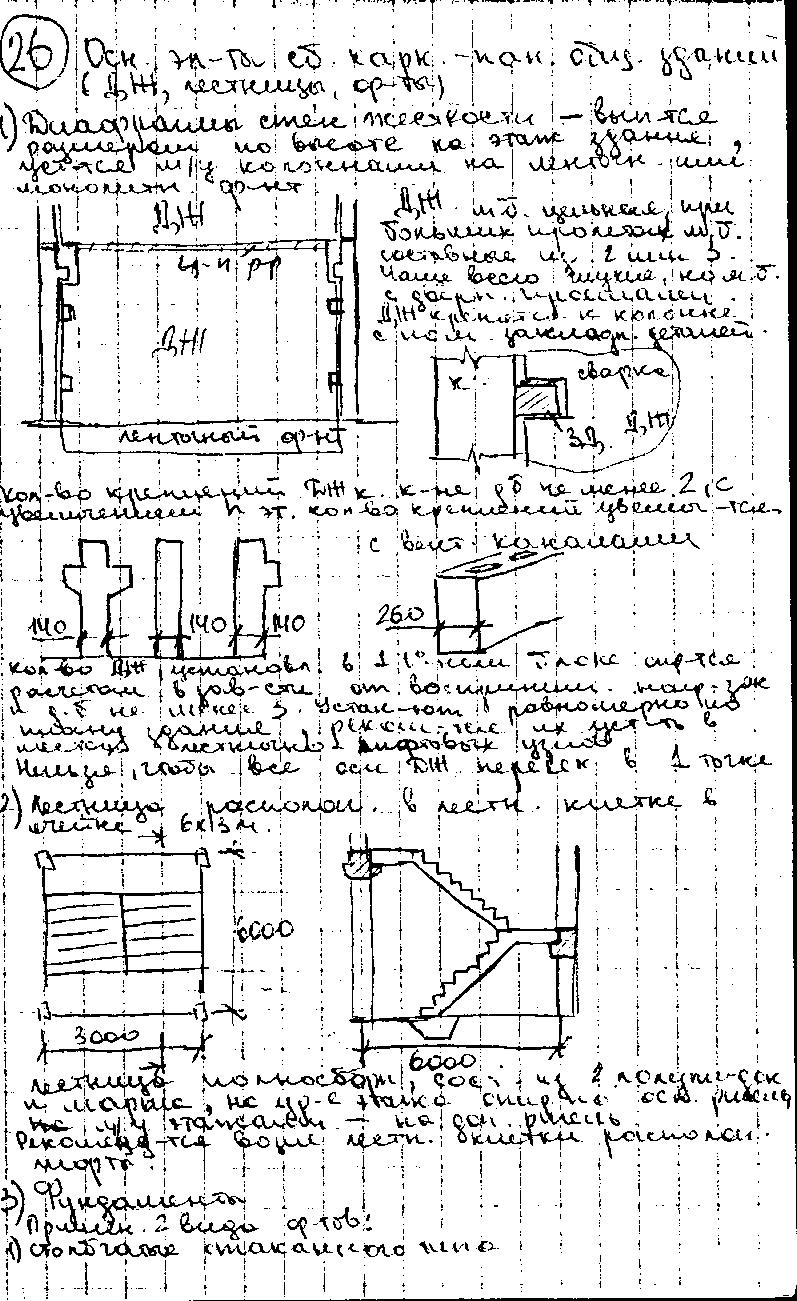 26 Осн. эл-ты сб. карк.-пан. общ. зданий
(ДЖ, лестницы, ф-ты)
1) Диафрагмы стен жесткости – вып-тся
размером по высоте на этаж здания,
уст-тся м/у колоннами на ленточн. или
монолитн. ф-нт
ДЖ
ц-п р-р
ДЖ
ленточный ф-нт
ДЖ м.б. цельная, при
больших пролетах м.б.
составные из 2 или 3.
Чаще всего глухие, но м.б.
с дверн. проемами.
ДЖ крепится к колонне
с пом. закладн. деталей.
К
сварка
ЗД
ДЖ
Кол-во креплений ДЖ к к-не д.б не менее 2, с
увеличением h эт. кол-во креплений увелич-тся.
с вент. каналами
140
140
140
260
Кол-во ДЖ, установл. в 1 t° или блоке опр-тся
расчетом в зав-сти от восприним. нагр-зок
и д.б не менее 3. Устан-ют равномерно по
плану здания, реком-тся их уст-ть в
местах лестнично лифтовых узлов
Нельзя, чтобы все оси ДЖ пересек в 1 точке
2) Лестница располож. в лестн. клетке в
ячейке 6х3м.
6000
3000
6000
лестница полносборн, сост. из 2 полупл-док
и марша, на ур-е этажа опир. на осн. ригель
на м/у этажами – на доп. ригель
Рекоменд-тся возле лестн. клетки располож.
шахты.
3) Фундаменты
Примен. 2 вида ф-тов:
1) столбчатые стаканного типа